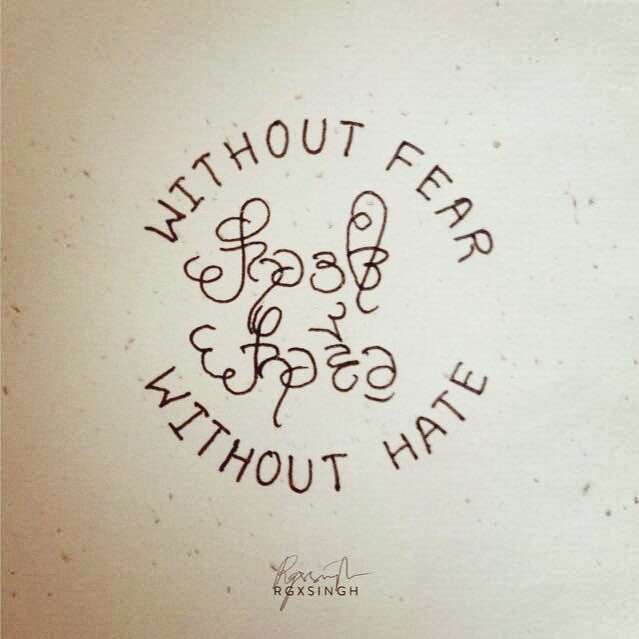 WITHOUT FEAR
ਨਿਰਭਉ
ਨਿਰਵੈਰੁ
WITHOUT HATE
RGXSINGH